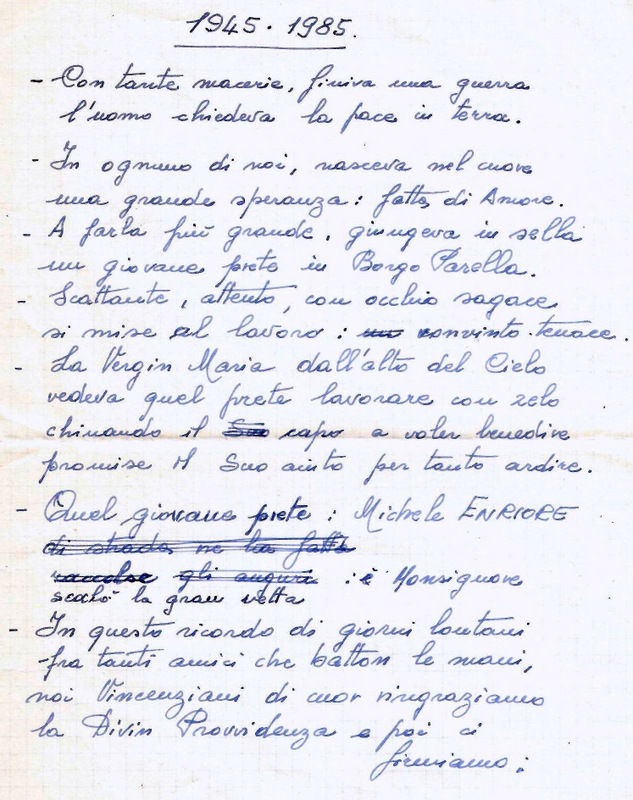 1945 · 1985.
- Con tante macerie, finiva una guerra
l'uomo chiedeva la pace in terra.
- In ognuno di noi, nasceva nel cuore
una grande speranza: fatta di Amore.
- A farla più grande, giungeva in sella
un giovane prete in Borgo Parella.
- Scattante, attento, con occhio sagace
si mise al lavoro: convinto. tenace.
- La Vergin Maria dall'alto del Cielo
vedeva quel prete lavorare con zelo
chinando il Suo capo a voler benedire
promise il Suo aiuto per tanto ardire.
- Quel giovane prete: Michele ENRIORE
di strada ne ha fatta
raccolse gli auguri : è Monsignore
scalò la gran vetta
- In questo ricordo di giorni lontani
-fra tanti amici che batton le mani,
noi Vincenziani di cuor ringraziamo
la Divin Provvidenza e poi ci
firmiamo: